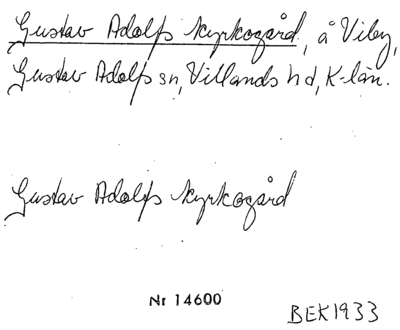 Gustav Adolfs kyrkogård, å Viby,
Gustav Adolfs sn, Villands hd, K-län.
Gustav Adolfs kyrkogård
Nr 14600
BEK1933